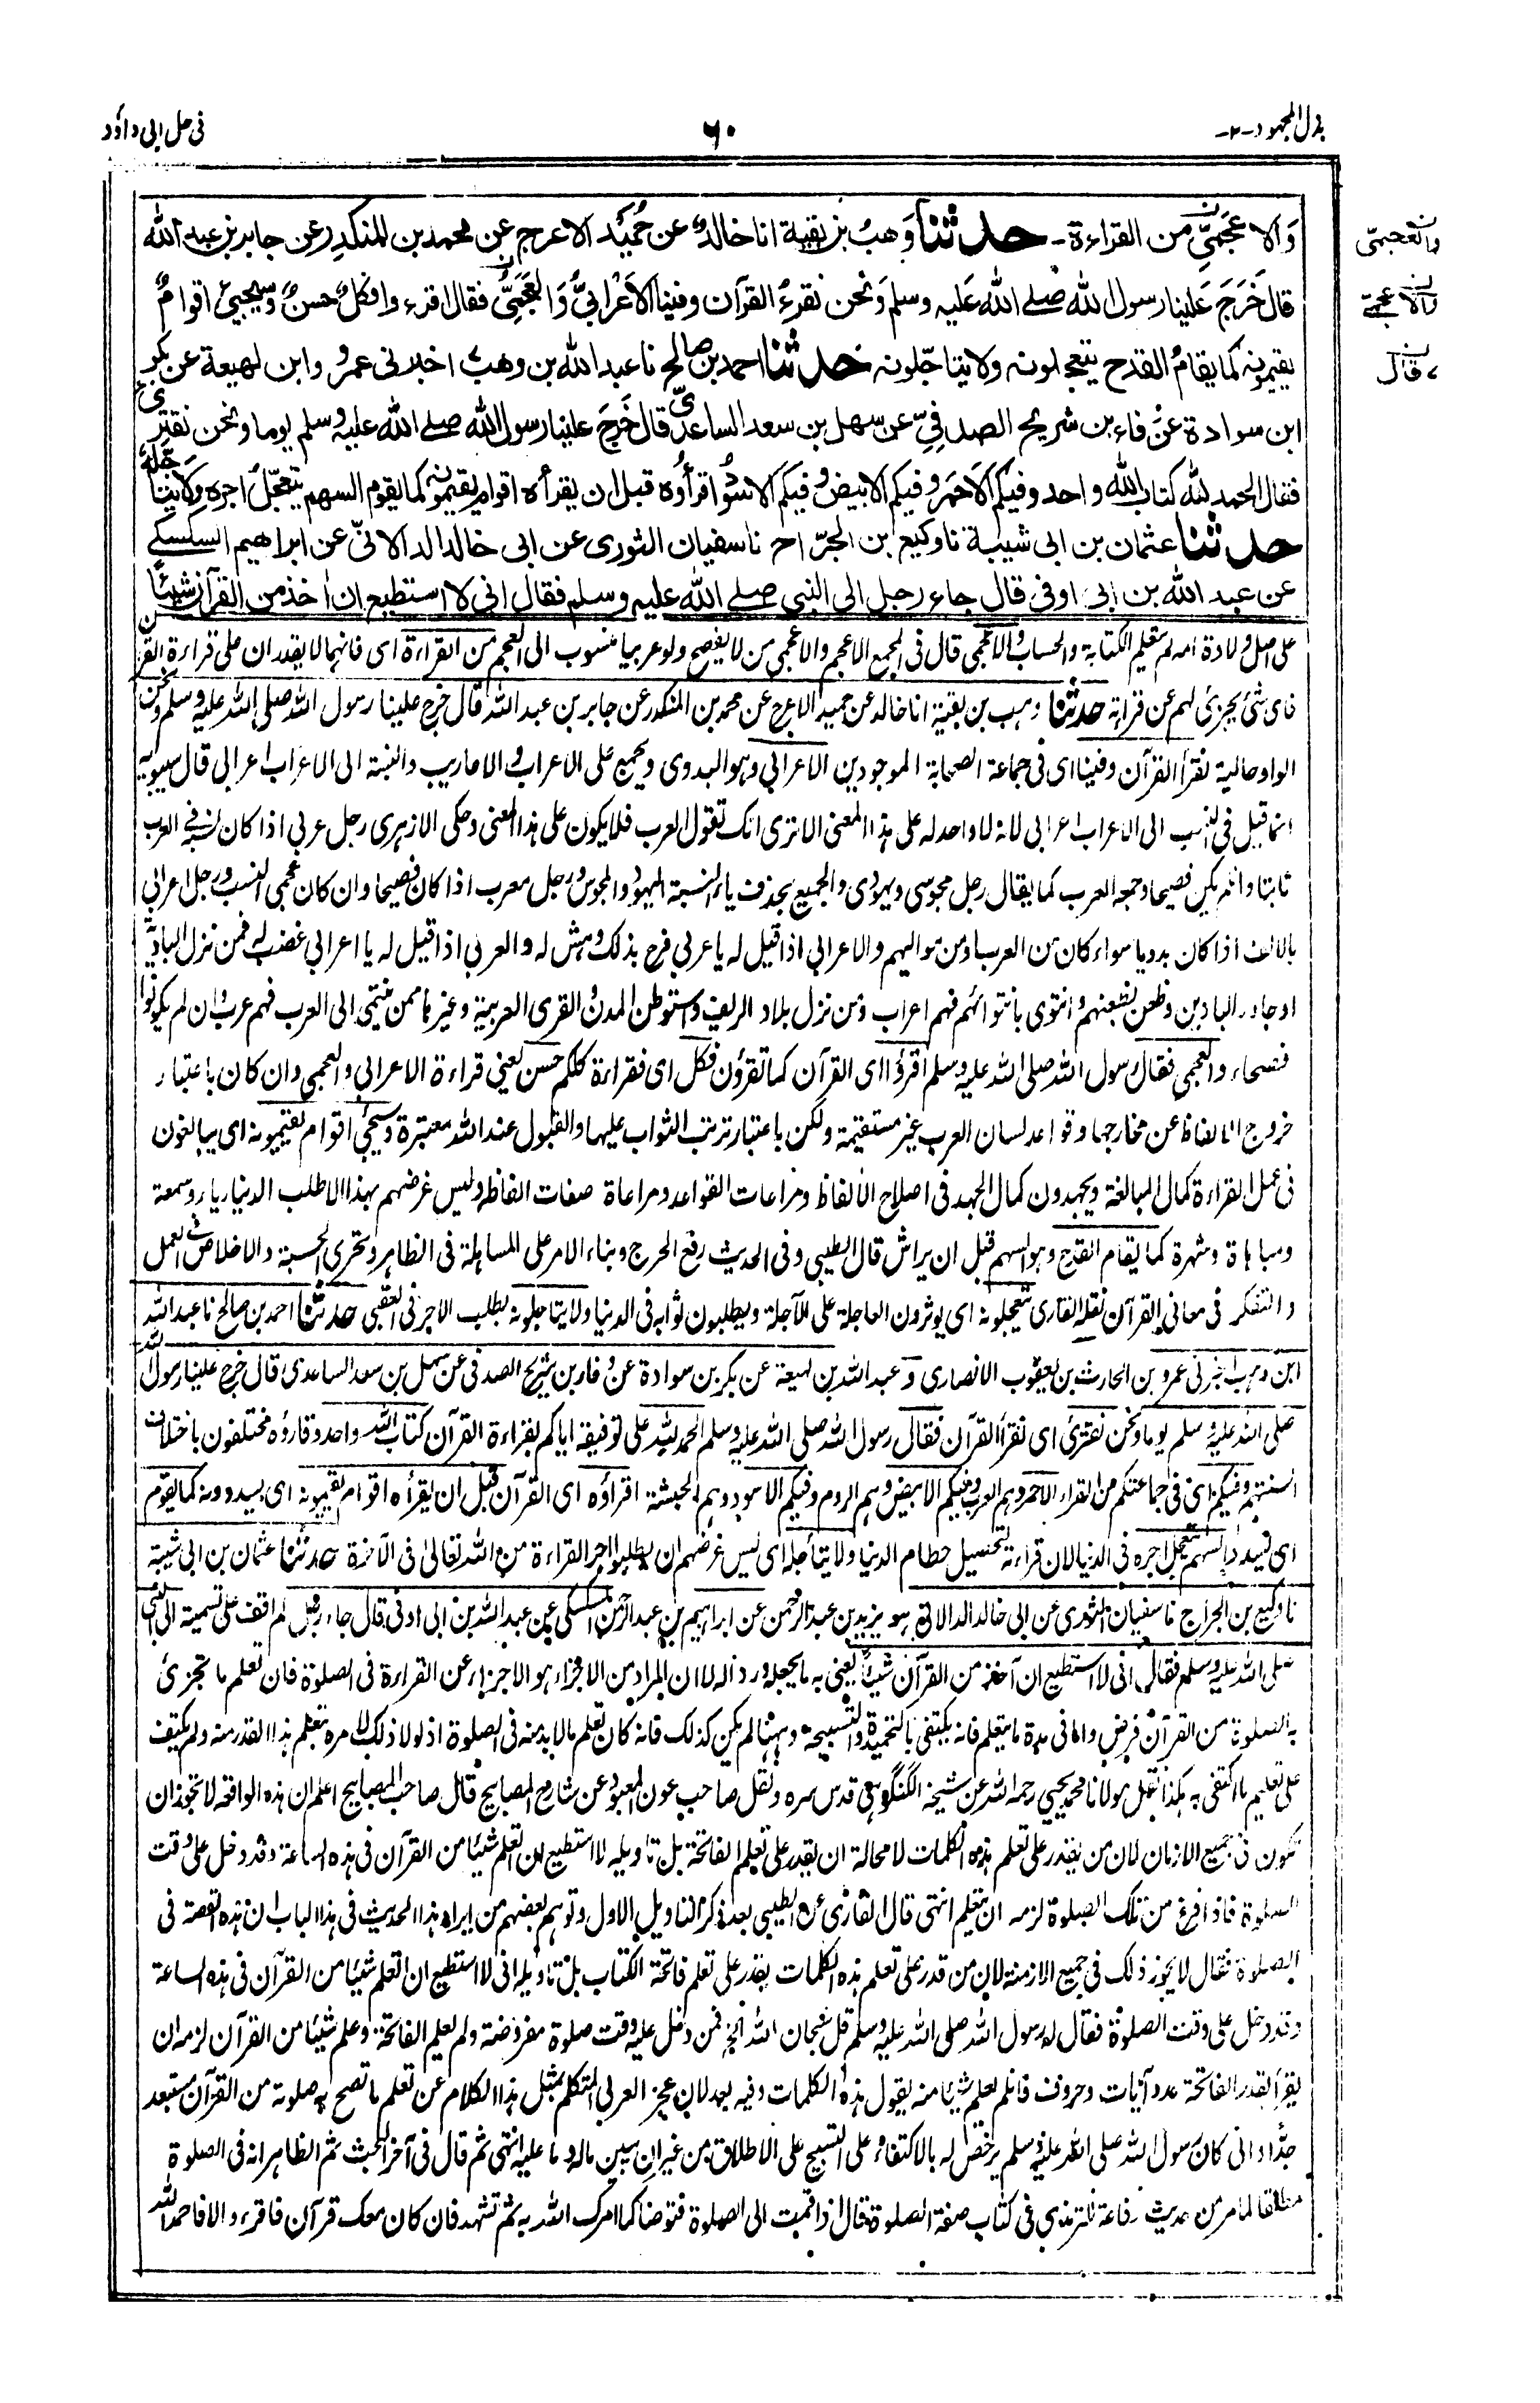 بذل المجهود-٢-
٦٠
فى حل ابى داؤد
والعجمىّ
والاعجمىّ
، قال
وَالاعجَمِىِّ من القراءة۔ حدثنا وَهبُ بن بقية انا خالدٌ عن حُمَيْد الاعرج عن محمد بن المنكدر عن جابر بن عبد الله
قال خَرَجَ عَلينا رسول الله صلے الله عَليه وسلم وَنحن نقرءُ القرآن وفينا الاَعْرابىُّ وَالعَجَمِىُّ فقال اقرءوا فكلٌ حسنٌ وسيجيئُ اقوامٌ
يقيمونه كما يقامُ القدح يتعجلونه ولا يتاجّلونه حدثنا احمد بن صالح نا عبد الله بن وهب اخبرنى عمرٌو وابن لهيعة عن بكر
ابن سوادة عن وفاء بن شريح الصدفىّ عن سهل بن سعد الساعدىّ قال خَرجَ علينا رسول الله صلے الله عليه وسلم يوما ونحن نقترئ
فقال الحمد لله كتاب الله واحد وفيكم الاَحمر وفيكم الابيض وفيكم الاسود اقرأوه قبل ان يقرأه اقوام يقيمونه كما يقوم السهم يتعجّلُ اجره ولا يتاجله
حدثنا عثمان بن ابى شيبة نا وكيع بن الجرّاح نا سفيان الثورى عن ابى خالد الدالانىّ عن ابراهيم السكسكے
عن عبد الله بن ابى اوفى قال جاء رجل الى النبى صلے الله عليه وسلم فقال انى لا استطيع ان اٰخذ من القرآن شيئاً
على اصل ولادة امه لم يتعلم الكتابة والحساب والاعجمى قال فى المجمع الاعجم والاعجمى من لا يفصح ولو عربيا منسوب الى العجم من القراءة اى فانهما لا يقدران على قراءة القرآن
فاى شئ يجزئ لهم عن قراءته حدثنا وهب بن بقية انا خالد عن حميد الاعرج عن محمد بن المنكدر عن جابر بن عبد الله قال خرج علينا رسول الله صلى الله عليه وسلم ونحن
الواو حالية نقرأ القرآن وفينا اى فى جماعة الصحابة الموجودين الاعرابى وهو البدوى ويجمع على الاعراب والاعاريب والنسبة الى الاعراب اعرابى قال سيبويه
انما قيل فى النسب الى الاعراب اعرابى لانه لا واحد له على هذا المعنى الا ترى انك تقول العرب فلا يكون على هذا المعنى وحكى الازهرى رجل عربى اذا كان نسبه فى العرب
ثابتا وان لم يكن فصيحا وجمعه العرب كما يقال رجل مجوسى ويهودى والجميع بحذف ياء النسبة اليهود والمجوس ورجل معرب اذا كان فصيحا وان كان عجمى النسب ورجل اعرابى
بالالف اذا كان بدويا سواء كان من العرب او من مواليهم والاعرابى اذا قيل له يا عربى فرح بذلك وهش له والعربى اذا قيل له يا اعرابى غضب له فمن نزل البادية
او جاور البادين وظعن بظعنهم وانتوى بانتوائهم فهم اعراب ومن نزل بلاد الريف واستوطن المدن والقرى العربية وغيرها ممن ينتمى الى العرب فهم عرب وان لم يكونوا
فصحاء والعجمى فقال رسول الله صلى الله عليه وسلم اقرؤا اى القرآن كما تقرؤن فكل اى فقراءة كلكم حسن يعنى قراءة الاعرابى والعجمى وان كان باعتبار
خروج الالفاظ عن مخارجها وقواعد لسان العرب غير مستقيمة ولكن باعتبار ترتب الثواب عليها والقبول عند الله معتبرة وسيجئ اقوام يقيمونه اى يبالغون
فى عمل القراءة كمال المبالغة ويجهدون كمال الجهد فى اصلاح الالفاظ ومراعات القواعد ومراعاة صفات الفاظه وليس غرضهم بهذا الا طلب الدنيا رياء وسمعة
ومباهاة وشهرة كما يقام القدح وهو السهم قبل ان يراش قال الطيبى وفى الحديث رفع الحرج وبناء الامر على المساهلة فى الظاهر وتحرى الحسبة والاخلاص فى العمل
والتفكر فى معانى القرآن نقله القارى يتعجلونه اى يوثرون العاجلة على الآجلة ويطلبون ثوابه فى الدنيا ولا يتاجلونه بطلب الاجر فى العقبى حدثنا احمد بن صالح نا عبد الله
ابن وهب اخبرنى عمرو بن الحارث بن يعقوب الانصارى وعبد الله بن لهيعة عن بكر بن سوادة عن وفاء بن شريح الصدفى عن سهل بن سعد الساعدى قال خرج علينا رسول الله
صلى الله عليه وسلم يوما ونحن نقترئ اى نقرأ القرآن فقال رسول الله صلى الله عليه وسلم الحمد لله على توفيقه اياكم بقراءة القرآن كتاب الله واحد وقاروه مختلفون باختلاف
السنتهم وفيكم اى فى جماعتكم من القراء الاحمر وهم العرب وفيكم الابيض وهم الروم وفيكم الاسود وهم الحبشة اقرأوه اى القرآن قبل ان يقرأه اقوام يقيمونه اى يسددونه كما يقوم
اى يسدد السهم يتعجل اجره فى الدنيا لان قراءته لتحصيل حطام الدنيا ولا يتأجله اى ليس غرضهم ان يطلبوا اجر القراءة من الله تعالى فى الآخرة حدثنا عثمان بن ابى شيبة
نا وكيع بن الجراح نا سفيان الثورى عن ابى خالد الدالانى هو يزيد بن عبد الرحمن عن ابراهيم بن عبد الرحمن السكسكى عن عبد الله بن ابى اوفى قال جاء رجل لم اقف على تسمية الى النبى
صلى الله عليه وسلم فقال انى لا استطيع ان آخذ من القرآن شيئا يعنى به ما يجعله وردا له لا ان المراد من الاجزاء هو الاجزاء عن القراءة فى الصلوة فان تعلم ما تجزئ
به الصلوة من القرآن فرض واما فى مدة ما يتعلم فانه يكتفى بالتحميدة والتسبيحة وههنا لم يكن كذلك فانه كان تعلم ما لا بد منه فى الصلوة اذ لولا ذلك لامره بتعلم هذا القدر منه ولم يكتف
على تعليم ما اكتفى به هكذا نقل مولانا محمد يحيى رحمه الله عن شيخه الگنگوهى قدس سره ونقل صاحب عون المعبود عن شارح المصابيح قال صاحب المصابيح اعلم ان هذه الواقعة لا تجوز ان
تكون فى جميع الازمان لان من يقدر على تعلم هذه الكلمات لا محالة ان يقدر على تعلم الفاتحة بل تاويله لا استطيع ان اتعلم شيئا من القرآن فى هذه الساعة وقد دخل على وقت
الصلوة فاذا فرغ من تلك الصلوة لزمه ان يتعلم انتهى قال القارى عن الطيبى بعد ذكر التاويل الاول وتوهم بعضهم من ايراد هذا الحديث فى هذا الباب ان هذه القصة فى
الصلوة فقال لا يجوز ذلك فى جميع الازمنة لان من قدر على تعلم هذه الكلمات يقدر على تعلم فاتحة الكتاب بل تاويله انى لا استطيع ان اتعلم شيئا من القرآن فى هذه الساعة
وقد دخل على وقت الصلوة فقال له رسول الله صلى الله عليه وسلم قل سبحان الله الخ فمن دخل عليه وقت صلوة مفروضة ولم يعلم الفاتحة وعلم شيئا من القرآن لزمه ان
يقرأ بقدر الفاتحة عدد آيات وحروف فان لم يعلم شيئا منه يقول هذه الكلمات وفيه بعد لان عجز العربى المتكلم بمثل هذا الكلام عن تعلم ما تصح به صلوته من القرآن مستبعد
جدا وانى كان رسول الله صلى الله عليه وسلم يرخص له بالاكتفاء على التسبيح على الاطلاق من غير ان يبين ماله وما عليه انتهى ثم قال فى آخر البحث ثم الظاهر انه فى الصلوة
مطلقا لما مر من حديث رفاعة للترمذى فى كتاب صفة الصلوة قال اذا قمت الى الصلوة فتوضا كما امرك الله به ثم تشهد فان كان معك قرآن فاقرء والا فاحمد الله